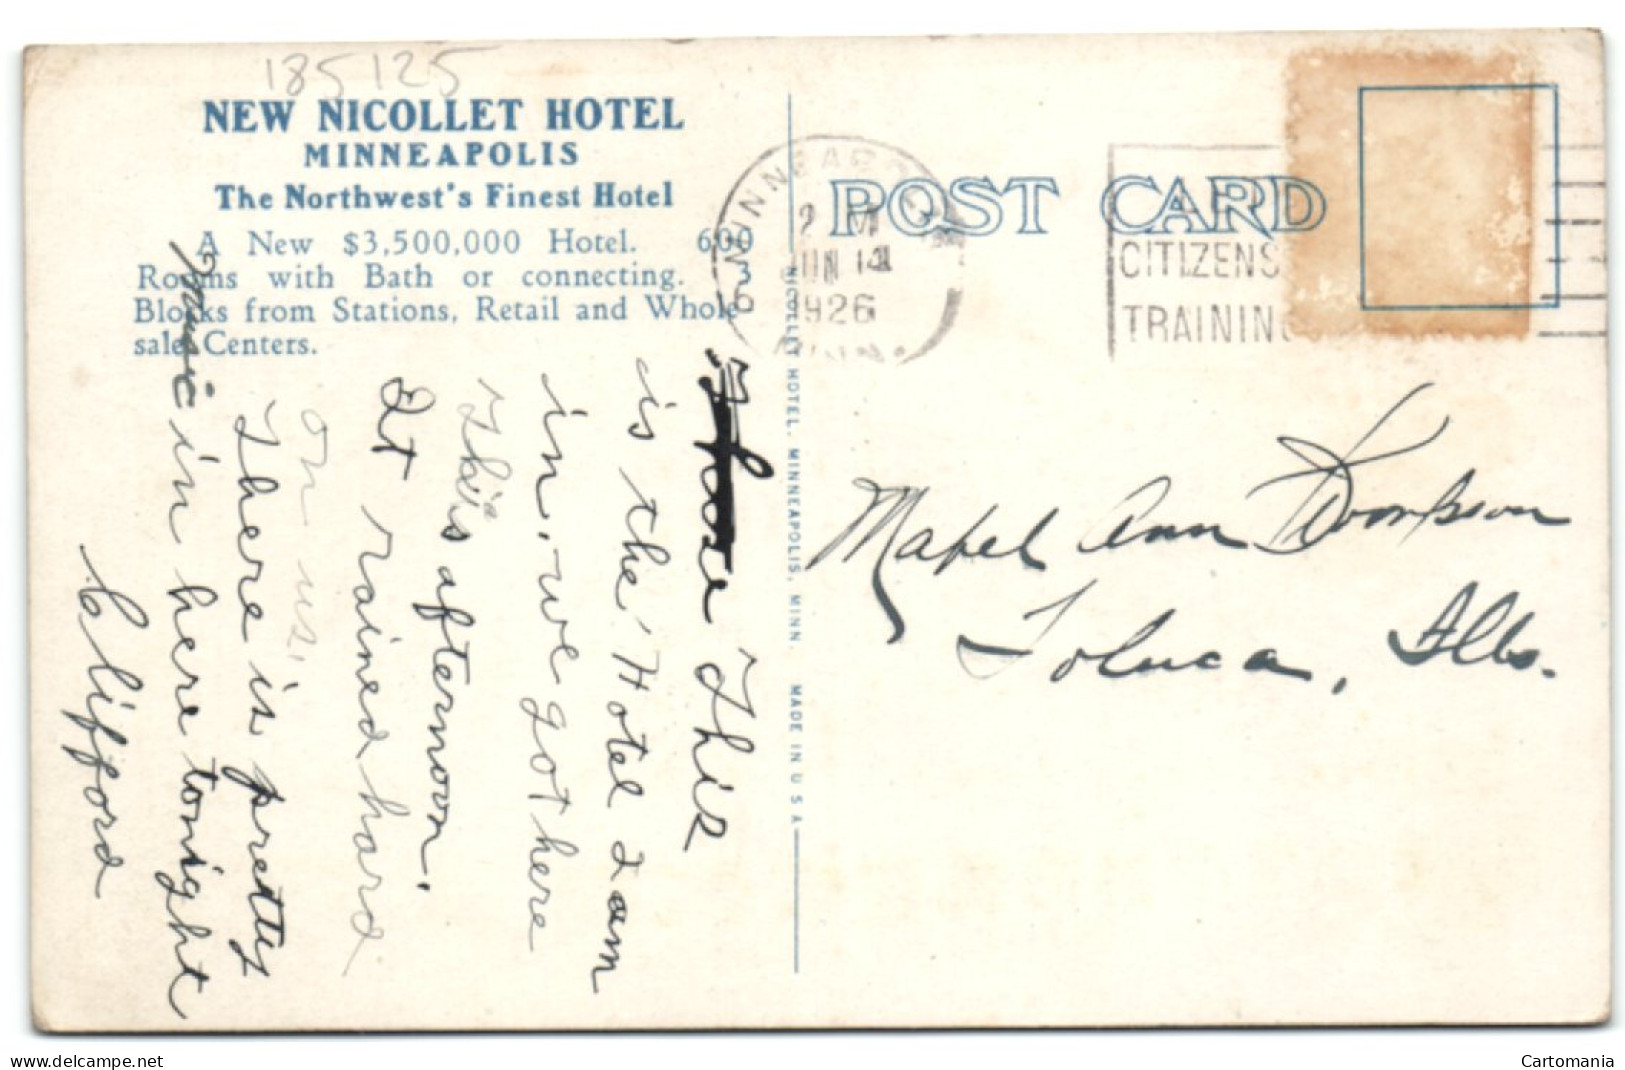 185125
NEW NICOLLET HOTEL
MINNEAPOLIS
The Northwest's Finest Hotel
A New $3,500,000 Hotel. 600
Rooms with Bath or connecting. 3
Blocks from Stations, Retail and Whole-
sale Centers.
This
is the Hotel I am
in, we got here
this afternoon.
It rained hard
on us.
There is pretty
music in here tonight
Clifford
NICOLLET HOTEL, MINNEAPOLIS, MINN. MADE IN U S A
POST CARD
MINNEAPOLIS
JUN 14
1926
MINN.
CITIZENS
TRAINING
Mabel Ann Thompson
Toluca, Ills.
Cartomania
delcampe.net